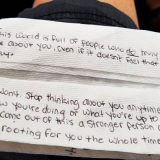 This world is full of people who do think
about you, even if it doesn't feel that
way.
wont stop thinking about you anytime
how you're doing or what you're up to
come out of this a stronger person
rooting for you the whole time